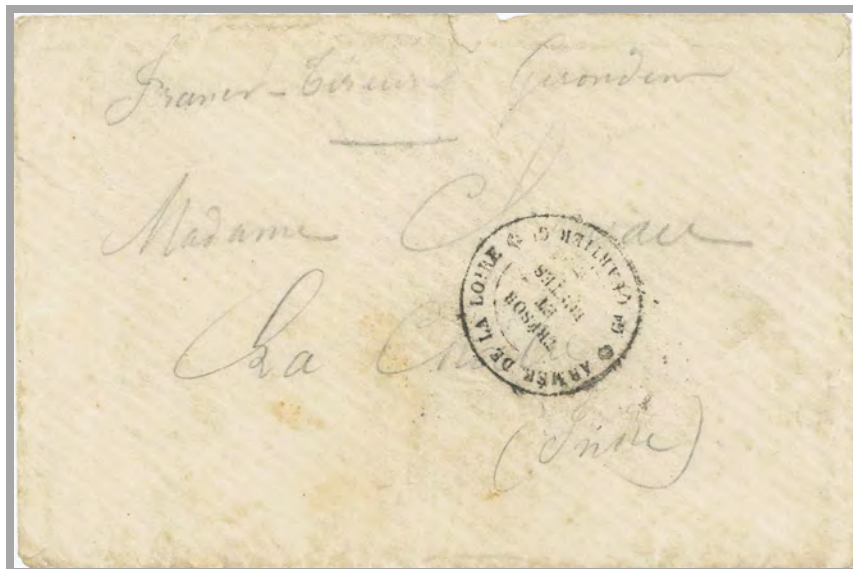 Francs-Tireurs Girondins
Madame
La
(Indre)
ARMÉE DE LA LOIRE
QUARTIER GAL
TRÉSOR
ET
POSTES